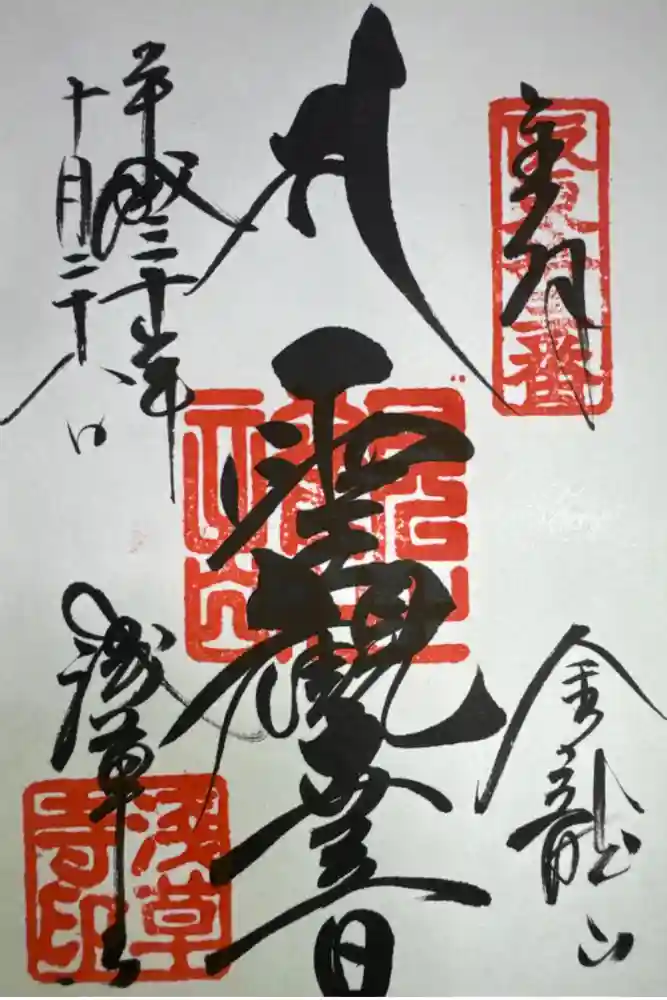 奉拝
坂東十三番
聖觀世音
金龍山
浅草寺
浅草寺印
平成三十年
十月二十八日